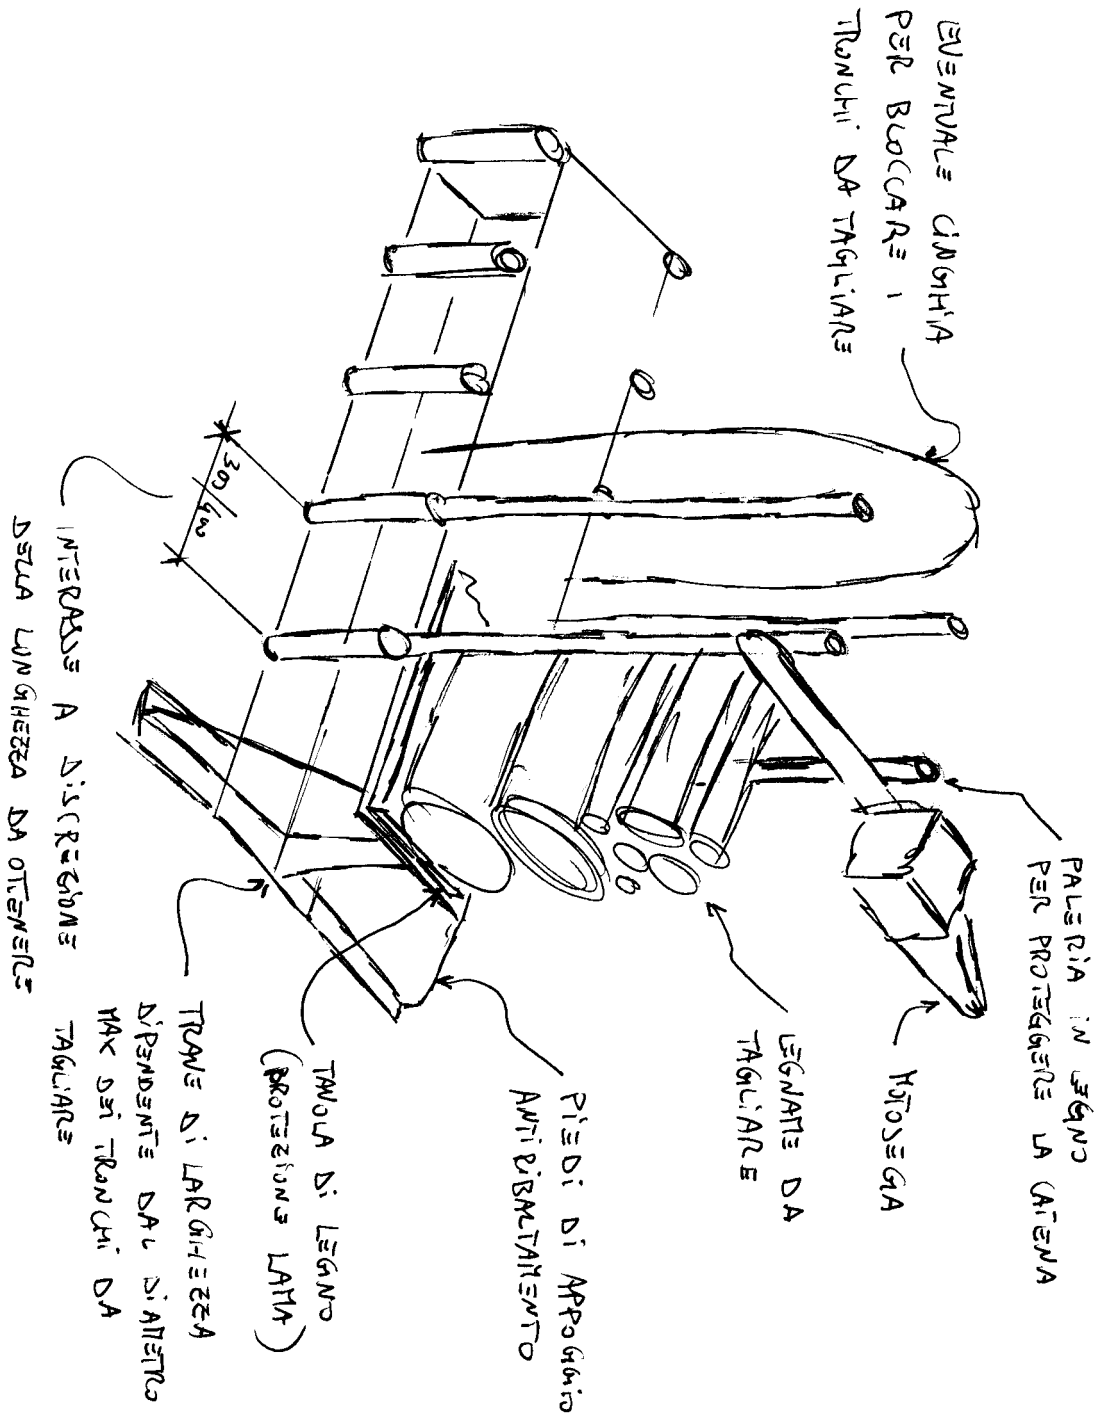 EVENTUALE CINGHIA
PER BLOCCARE I
TRONCHI DA TAGLIARE
PALERIA IN LEGNO
PER PROTEGGERE LA CATENA
MOTOSEGA
LEGNAME DA
TAGLIARE
PIEDI DI APPOGGIO
ANTIRIBALTAMENTO
TAVOLA DI LEGNO
(PROTEZIONE LAMA)
TRAVE DI LARGHEZZA
DIPENDENTE DAL DIAMETRO
MAX DEI TRONCHI DA
TAGLIARE
300/400
INTERASSE A DISCREZIONE
DELLA LUNGHEZZA DA OTTENERE